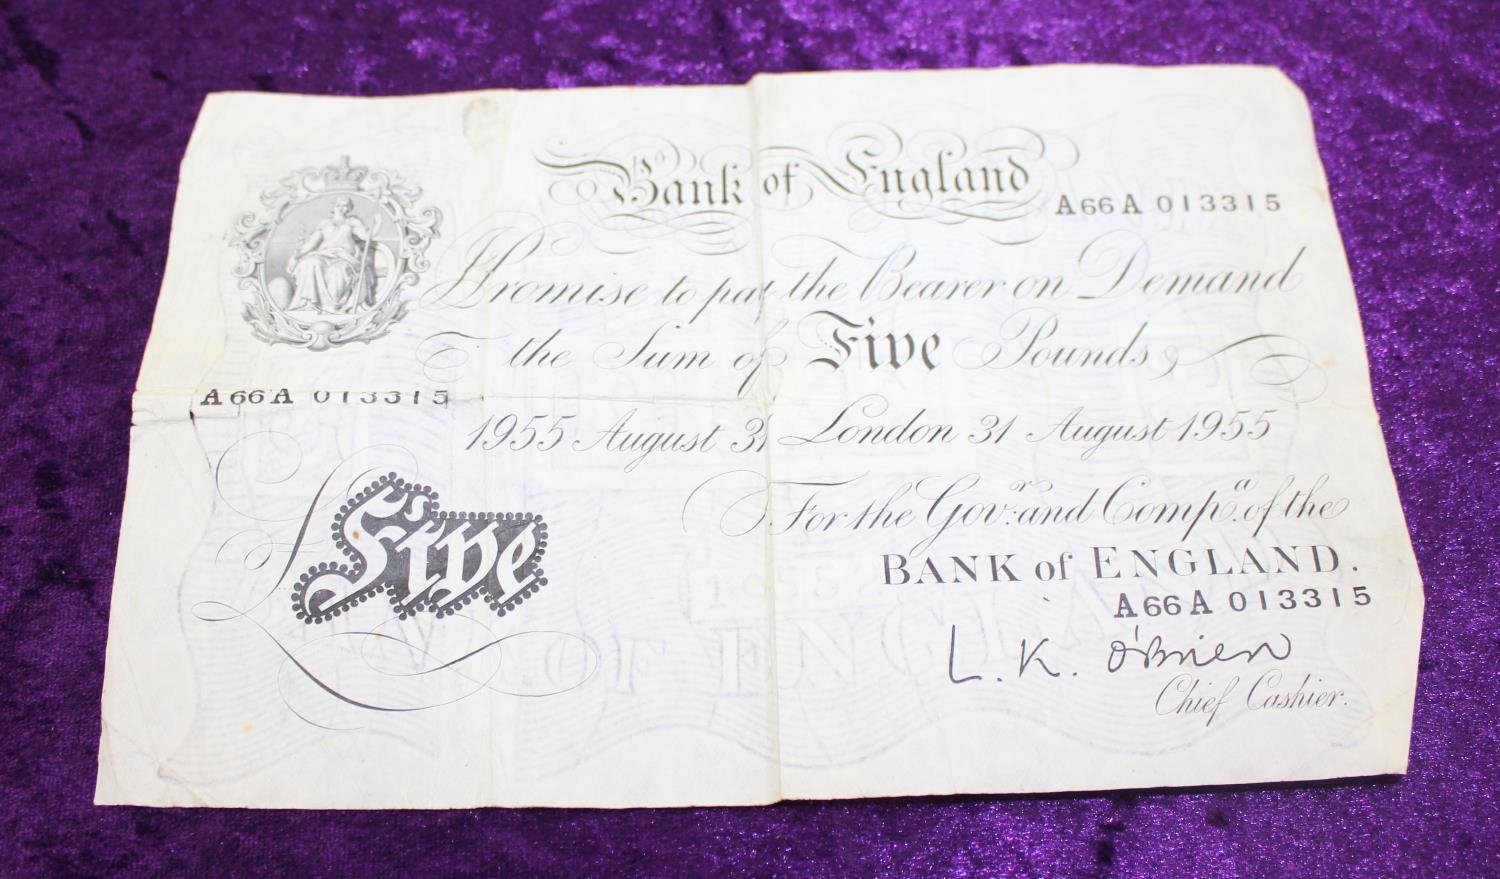 Bank of England
A66A 013315
I Promise to pay the Bearer on Demand
the Sum of Five Pounds
A66A 013315
1955 August 31 London 31 August 1955
For the Govr. and Compa. of the
BANK of ENGLAND.
£ Five
A66A 013315
L. K. O'Brien
Chief Cashier.